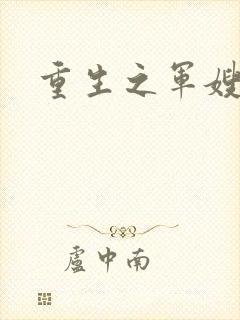 重生之军嫂
盧中南